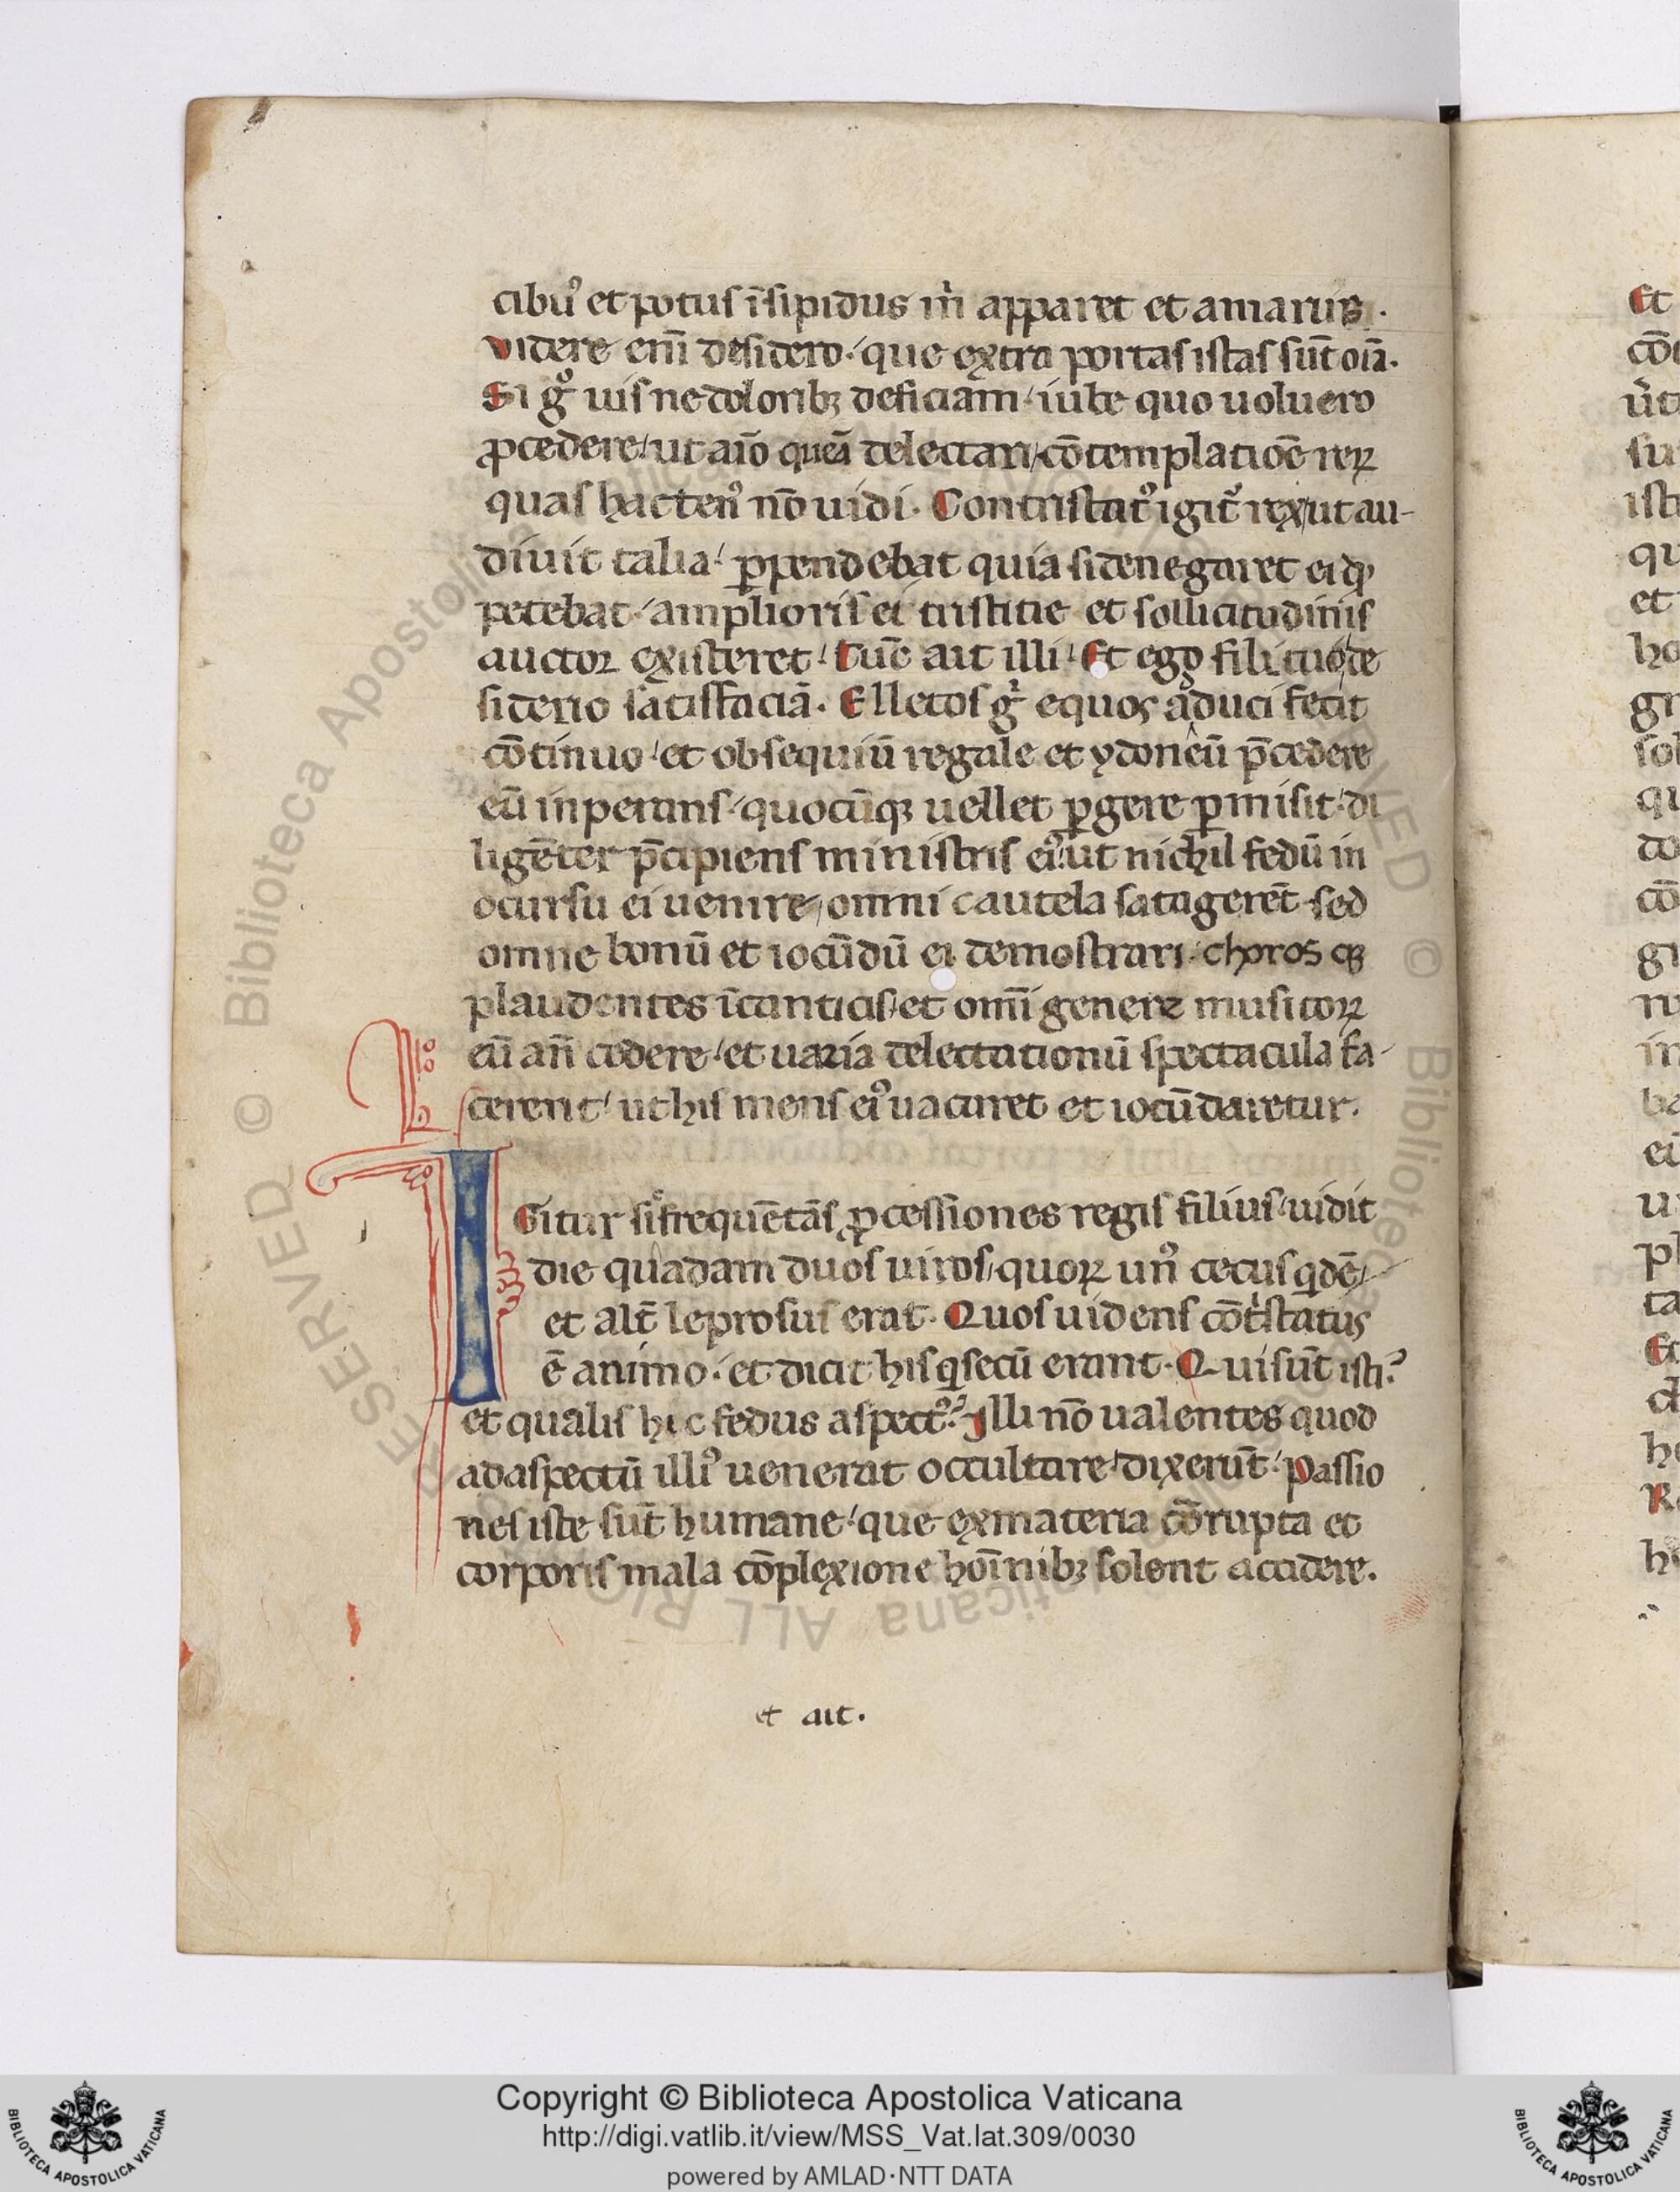 cibuꝰ et potus īsipidus m̄ apparet et amarus.
videre enī desidero. que extra portas istas sūt oīa.
Si gͦ uis ne doloribꝫ deficiam iube quo uoluero
ꝓcedere ut aīo queā delectari cōtemplatiōe reꝝ
quas hactenꝰ nō uidi. Contristatꝰ igit᷑ rex ut au-
diuit talia ꝑpendebat quia si denegaret ei qꝫ
petebat amplioris ei tristitie et sollicitudinis
auctor existeret. Tūc ait illi. Et ego fili tuo de
siderio satisfaciā. Elletos gͥ equos aduci fecit
cōtinuo et obsequiū regale et ydoneū p̄cedere
eū inperans quocūqꝫ uellet ꝑgere ꝑmisit. di
ligēter p̄cipiens ministris eiꝰ ut nichil fedū in
ocursu ei uenire omni cautela satagerēt sed
omne bonū et iocūdū ei demostrari. choros qꝫ
plaudentes ī canticis et omī genere musicoꝝ
eū an̄ cedere. et uaria delectationū spectacula fa-
cerent ut his mens eiꝰ uacaret et iocūdaretur.
IGitur sic̄ frequētās ꝓcessiones regis filius uidit
die quadam duos uiros quoꝝ unꝰ cecus qͥdē
et alt̄ leprosus erat. Quos uidens cōtͥstatus
ē animo. et dicit his qͥ secū erant. Qui sūt isti?
et qualis hic fedus aspectꝰ? Illi nō ualentes quod
ad aspectū illiꝰ uenerat occultare dixerūt. Passio
nes iste sūt humane que ex materia cōrupta et
corporis mala cōplexione hoīnibꝫ solent accidere.
et ait.
Et
cō
su
ist
qu
et
ho
gr
sol
qu
do
cō
gr
in
ba
u
pl
ta
Et
h
Copyright © Biblioteca Apostolica Vaticana
http://digi.vatlib.it/view/MSS_Vat.lat.309/0030
powered by AMLAD·NTT DATA
BIBLIOTECA APOSTOLICA VATICANA
BIBLIOTECA APOSTOLICA VATICANA